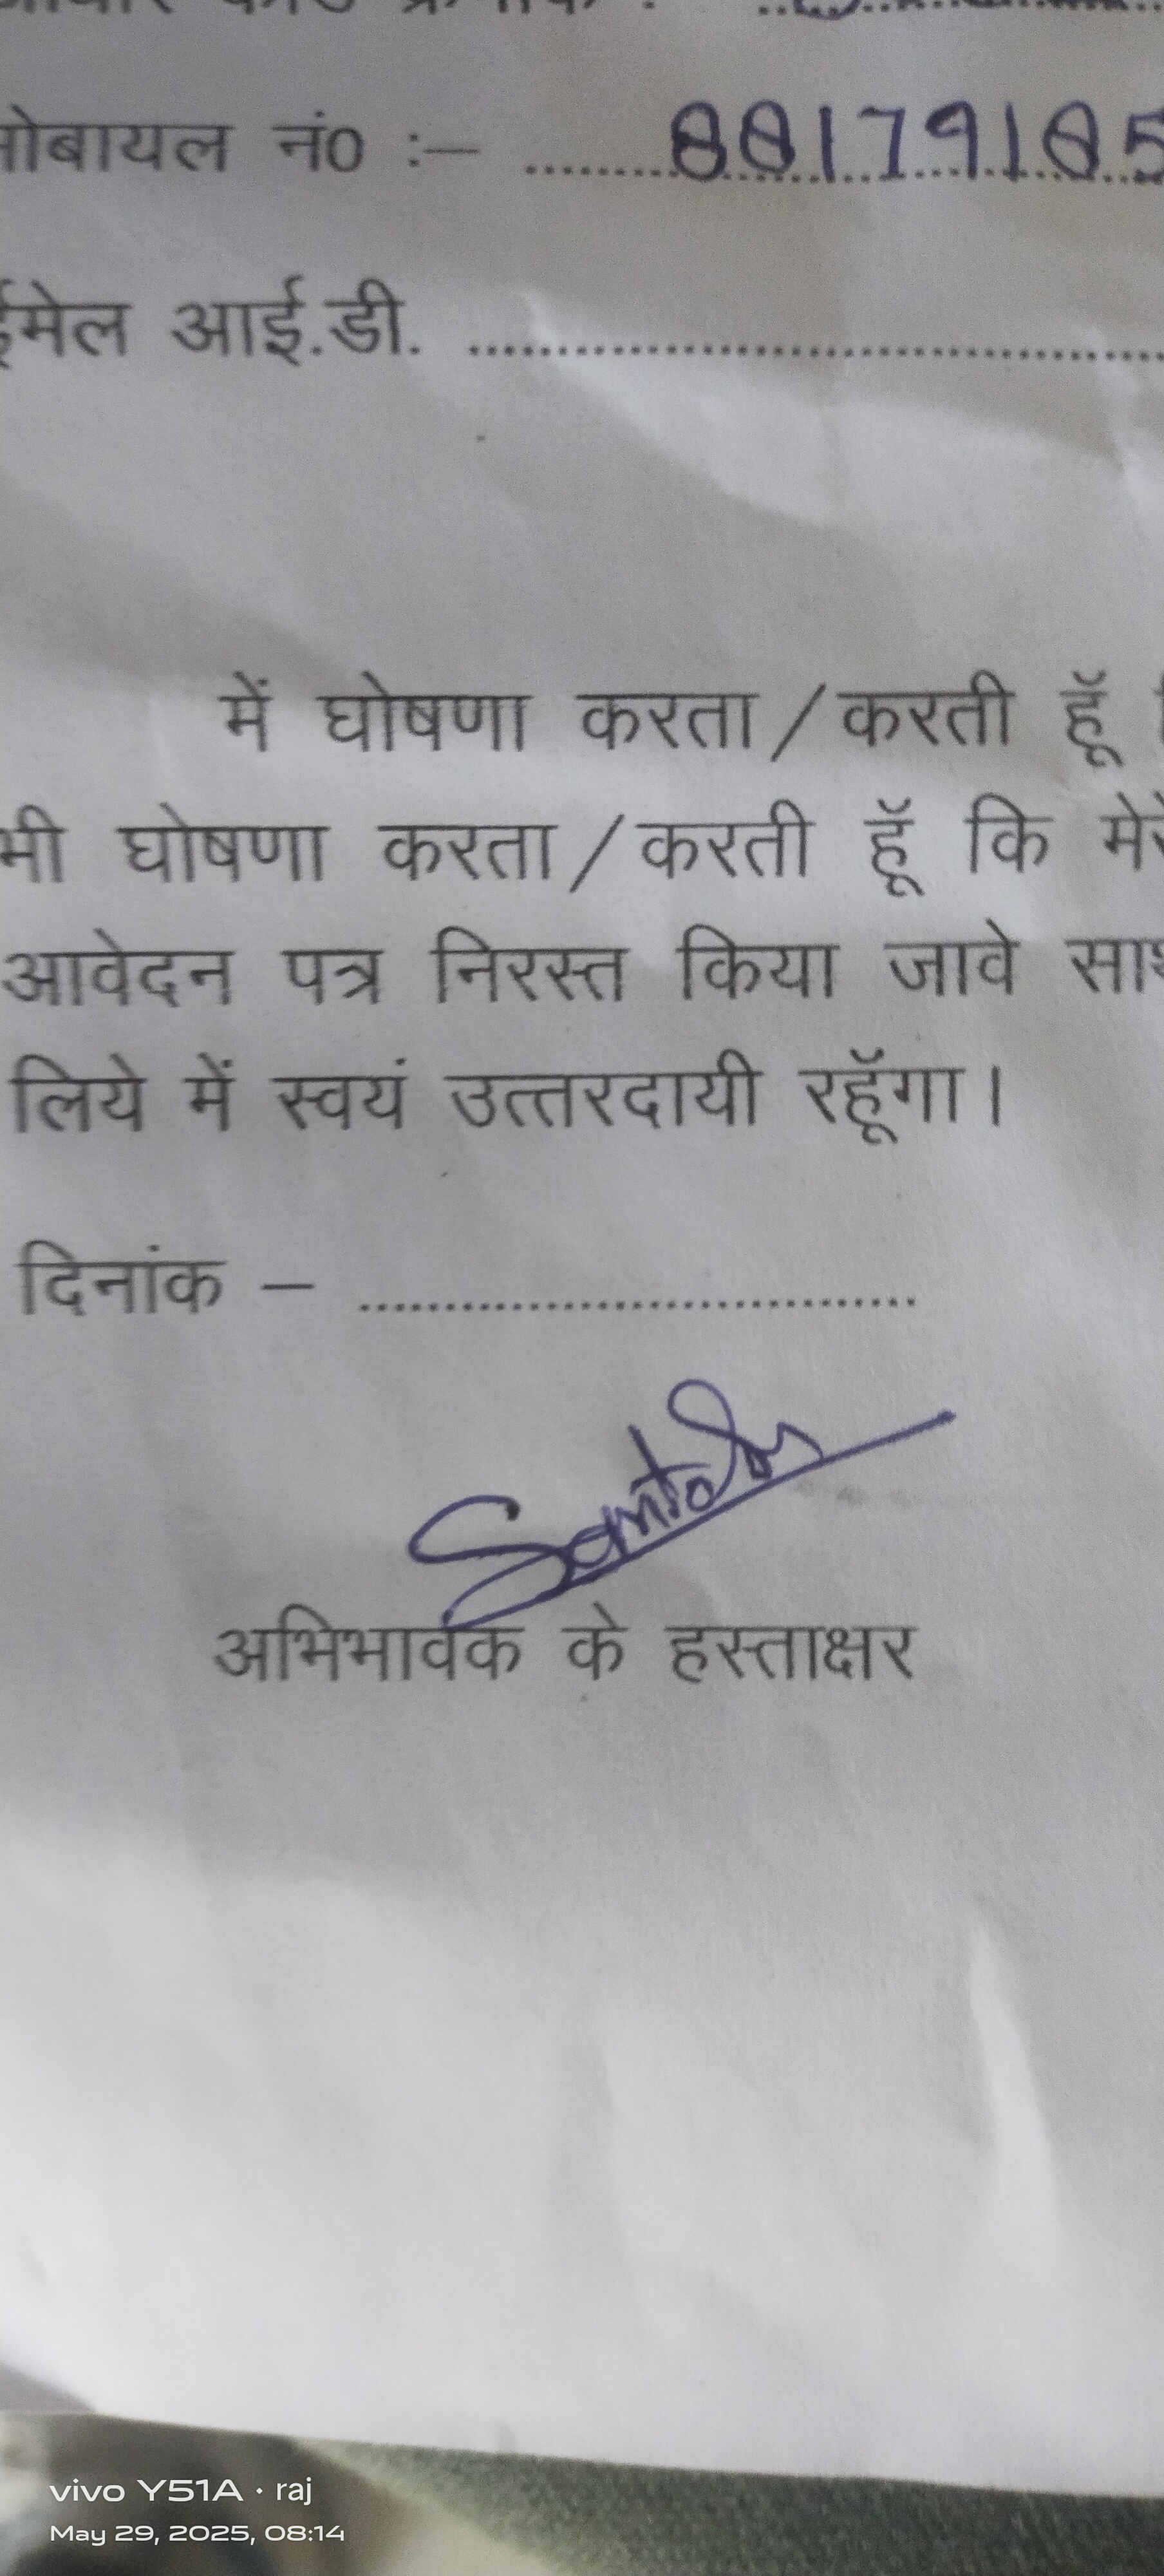 मोबायल नं0 :– ........88179185
ईमेल आई.डी. ........................................
में घोषणा करता/करती हूॅ
भी घोषणा करता/करती हूॅ कि मेरे
आवेदन पत्र निरस्त किया जावे साथ
लिये में स्वयं उत्तरदायी रहूॅगा।
दिनांक – ........................................
Santosh
अभिभावक के हस्ताक्षर
vivo Y51A · raj
May 29, 2025, 08:14